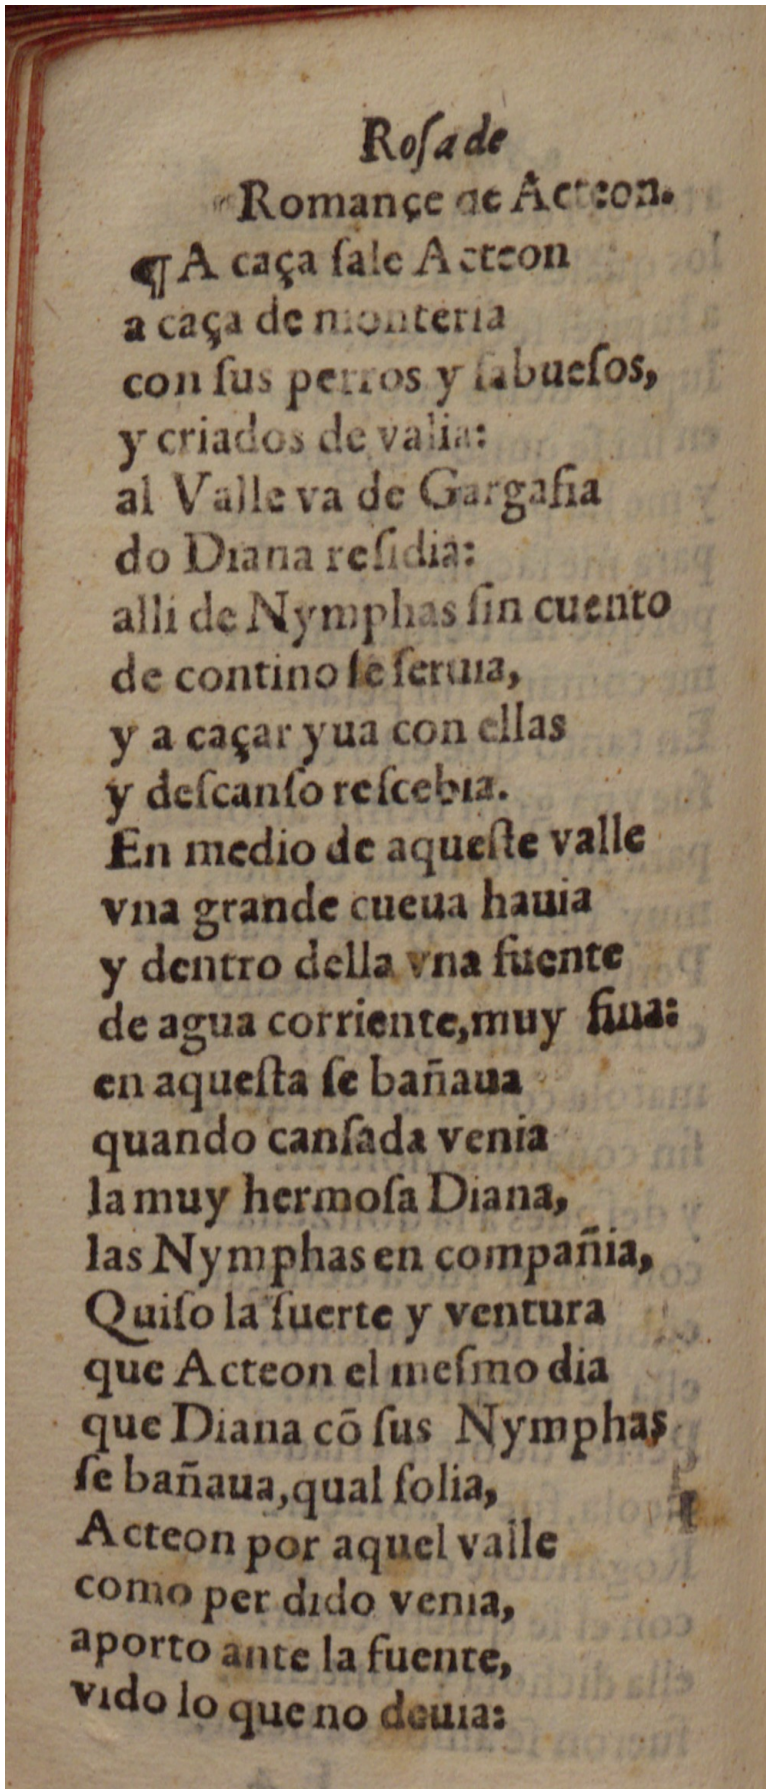 Roſa de
Romançe de Acteon.
¶ A caça ſale Acteon
a caça de monteria
con ſus perros y ſabueſos,
y criados de valia:
al Valle va de Gargafia
do Diana reſidia:
alli de Nymphas ſin cuento
de contino ſe ſeruia,
y a caçar yua con ellas
y deſcanſo reſcebia.
En medio de aqueſte valle
vna grande cueua hauia
y dentro della vna fuente
de agua corriente, muy fina:
en aqueſta ſe bañaua
quando canſada venia
la muy hermoſa Diana,
las Nymphas en compañia,
Quiſo la ſuerte y ventura
que Acteon el meſmo dia
que Diana cõ ſus Nymphas
ſe bañaua, qual ſolia,
Acteon por aquel valle
como per dido venia,
aporto ante la fuente,
vido lo que no deuia: